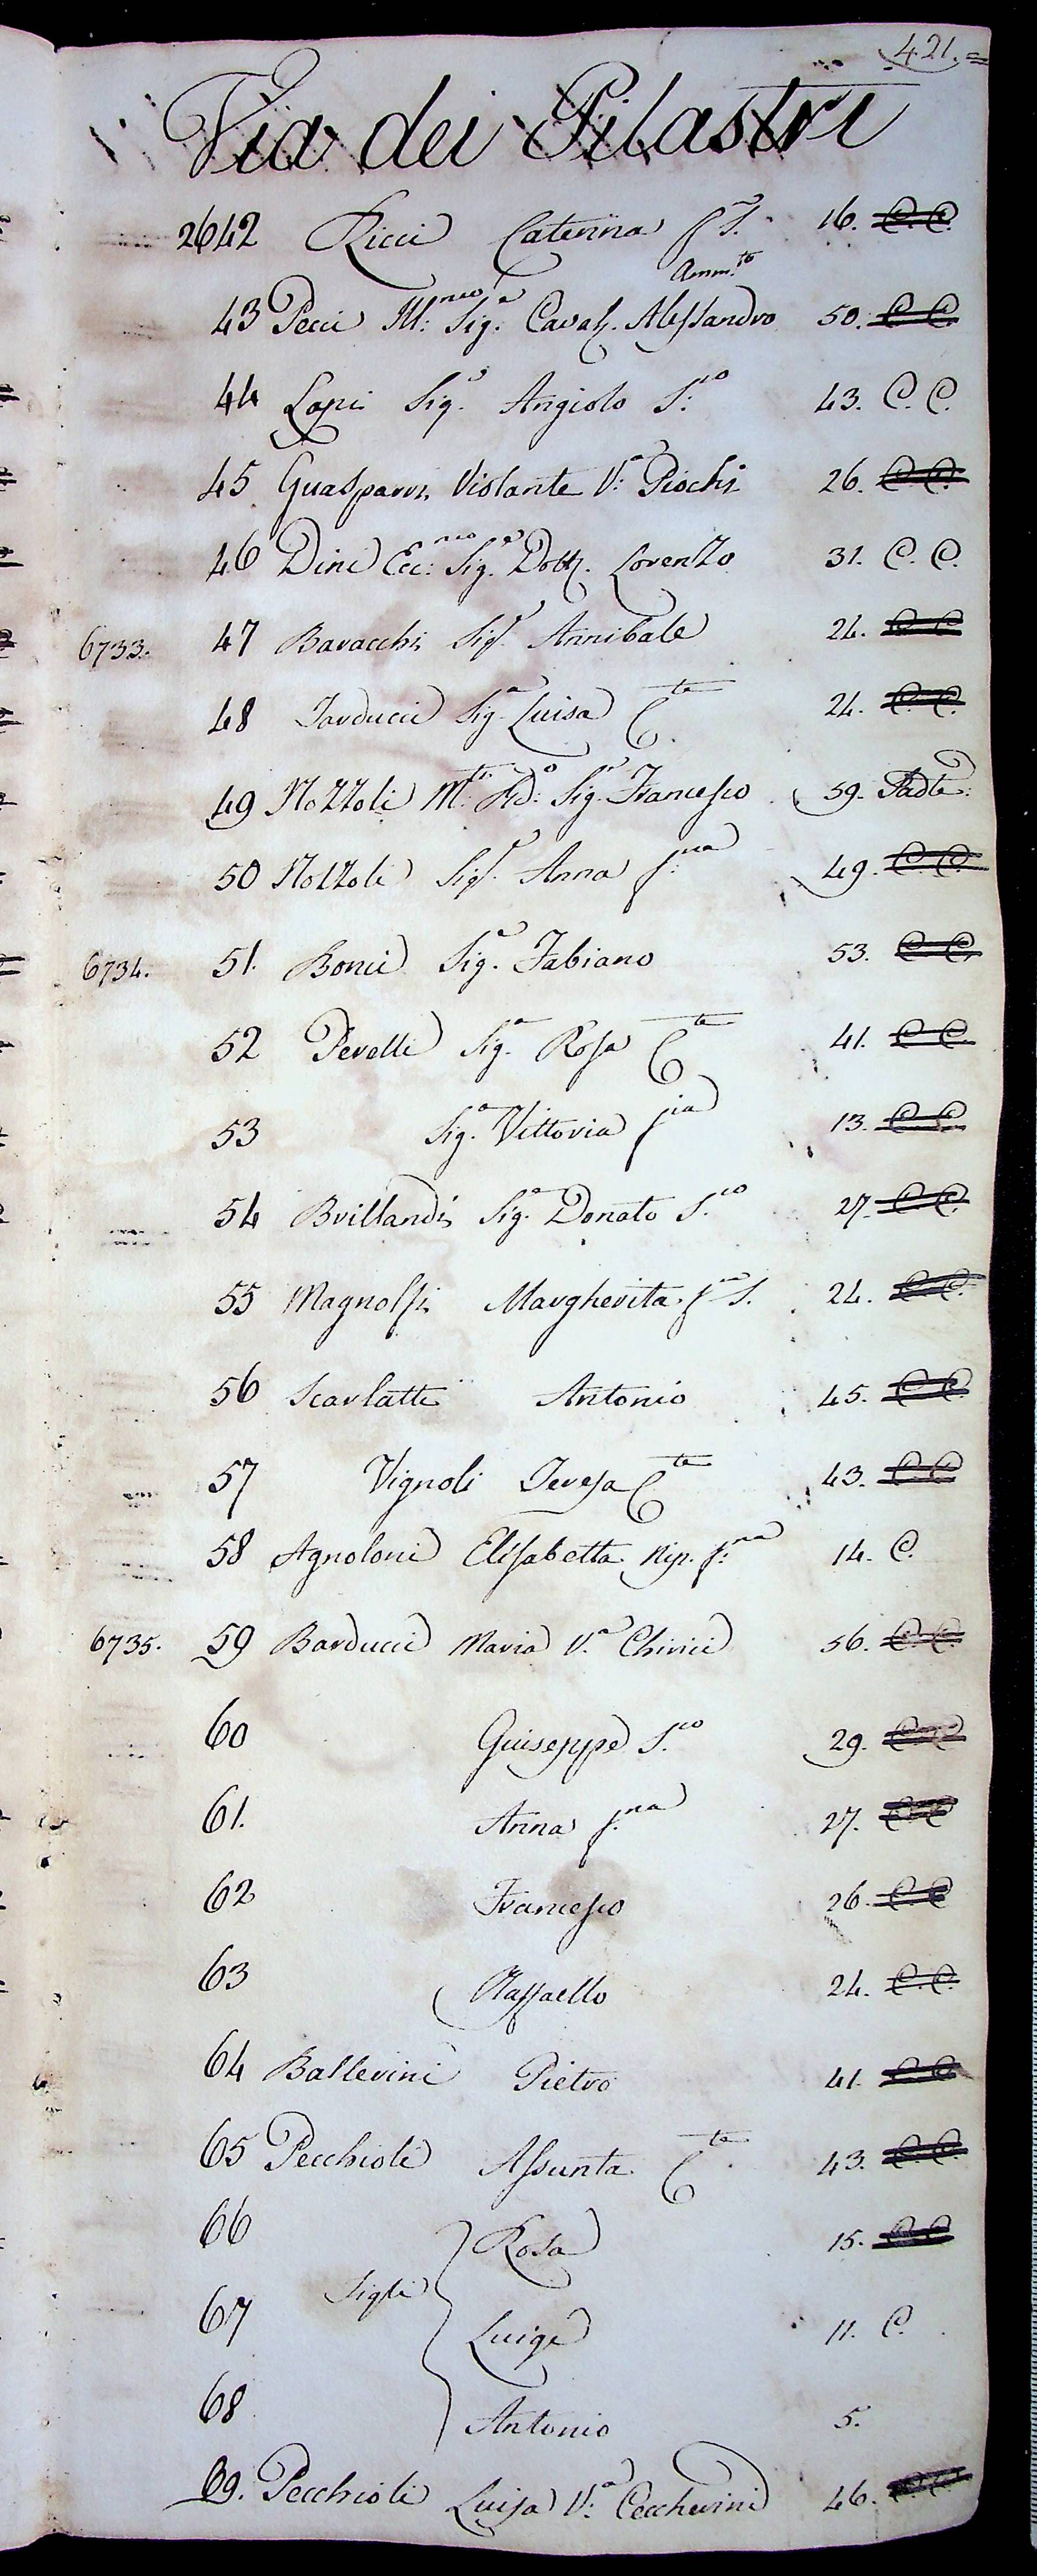 421.
Via dei Pilastri
2642 Ricci Caterina f. S. 16. C. C.
Amm.to
43 Pecci Ill:mo Sig.r Caval. Alessandro 50. C. C.
44 Lapi Sig.r Angiolo S:co 43. C. C.
45 Guasparri Violante V:a Piochi 26. C. C.
46 Dini Ecc:mo Sig.r Dott. Lorenzo 31. C. C.
6733. 47 Baracchi Sig.r Annibale 24. C. C.
48 Tarducci Sig.a Luisa C.te 24. C. C.
49 Nozzoli M.to Rd:o Sig.r Francesco 59. Sadte.
50 Nozzoli Sig.a Anna f:na 49. C. C.
6734. 51. Bonci Sig.r Fabiano 53. C. C.
52 Perelli Sig.a Rosa C.te 41. C. C.
53 Sig.a Vittoria f.ia 13. C. C.
54 Brillandi Sig.r Donato S.co 27. C. C.
55 Magnolfi Margherita f.na S. 24. C. C.
56 Scarlatti Antonio 45. C. C.
57 Vignoli Teresa C.te 43. C. C.
58 Agnoloni Elisabetta Nip. f:na 14. C.
6735. 59 Barducci Maria V.a Chirici 56. C. C.
60 Giuseppe S.co 29. C. C.
61. Anna f.na 27. C. C.
62 Francesco 26. C. C.
63 Raffaello 24. C. C.
64 Ballerini Pietro 41. C. C.
65 Pecchioli Assunta C.te 43. C. C.
66 Rosa 15. C. C.
67 Figli Luigi 11. C.
68 Antonio 5.
69. Pecchioli Luisa V:a Ceccherini 46. C. C.